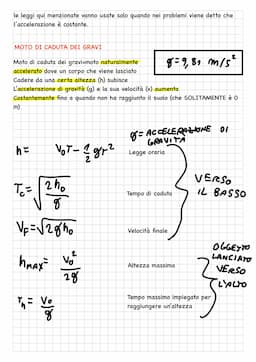 le leggi qui menzionate vanno usate solo quando nei problemi viene detto che
l'accelerazione è costante.
MOTO DI CADUTA DEI GRAVI
Moto di caduta dei gravi=moto naturalmente
accelerato dove un corpo che viene lasciato
Cadere da una certa altezza (h) subisce
L'accelerazione di gravità (g) e la sua velocità (x) aumenta
Costantemente fino a quando non ha raggiunto il suolo (che SOLITAMENTE è 0
m)
g = 9,81 m/s²
g = ACCELERAZIONE DI
GRAVITÀ
h = V₀T - 1/2 gT² Legge oraria
Tc = √(2h₀/g) Tempo di caduta
VERSO
IL BASSO
VF = √2gh₀ Velocità finale
hMAX = V₀²/2g Altezza massima
OGGETTO
LANCIATO
VERSO
L'ALTO
Th = V₀/g Tempo massimo impiegato per
raggiungere un'altezza